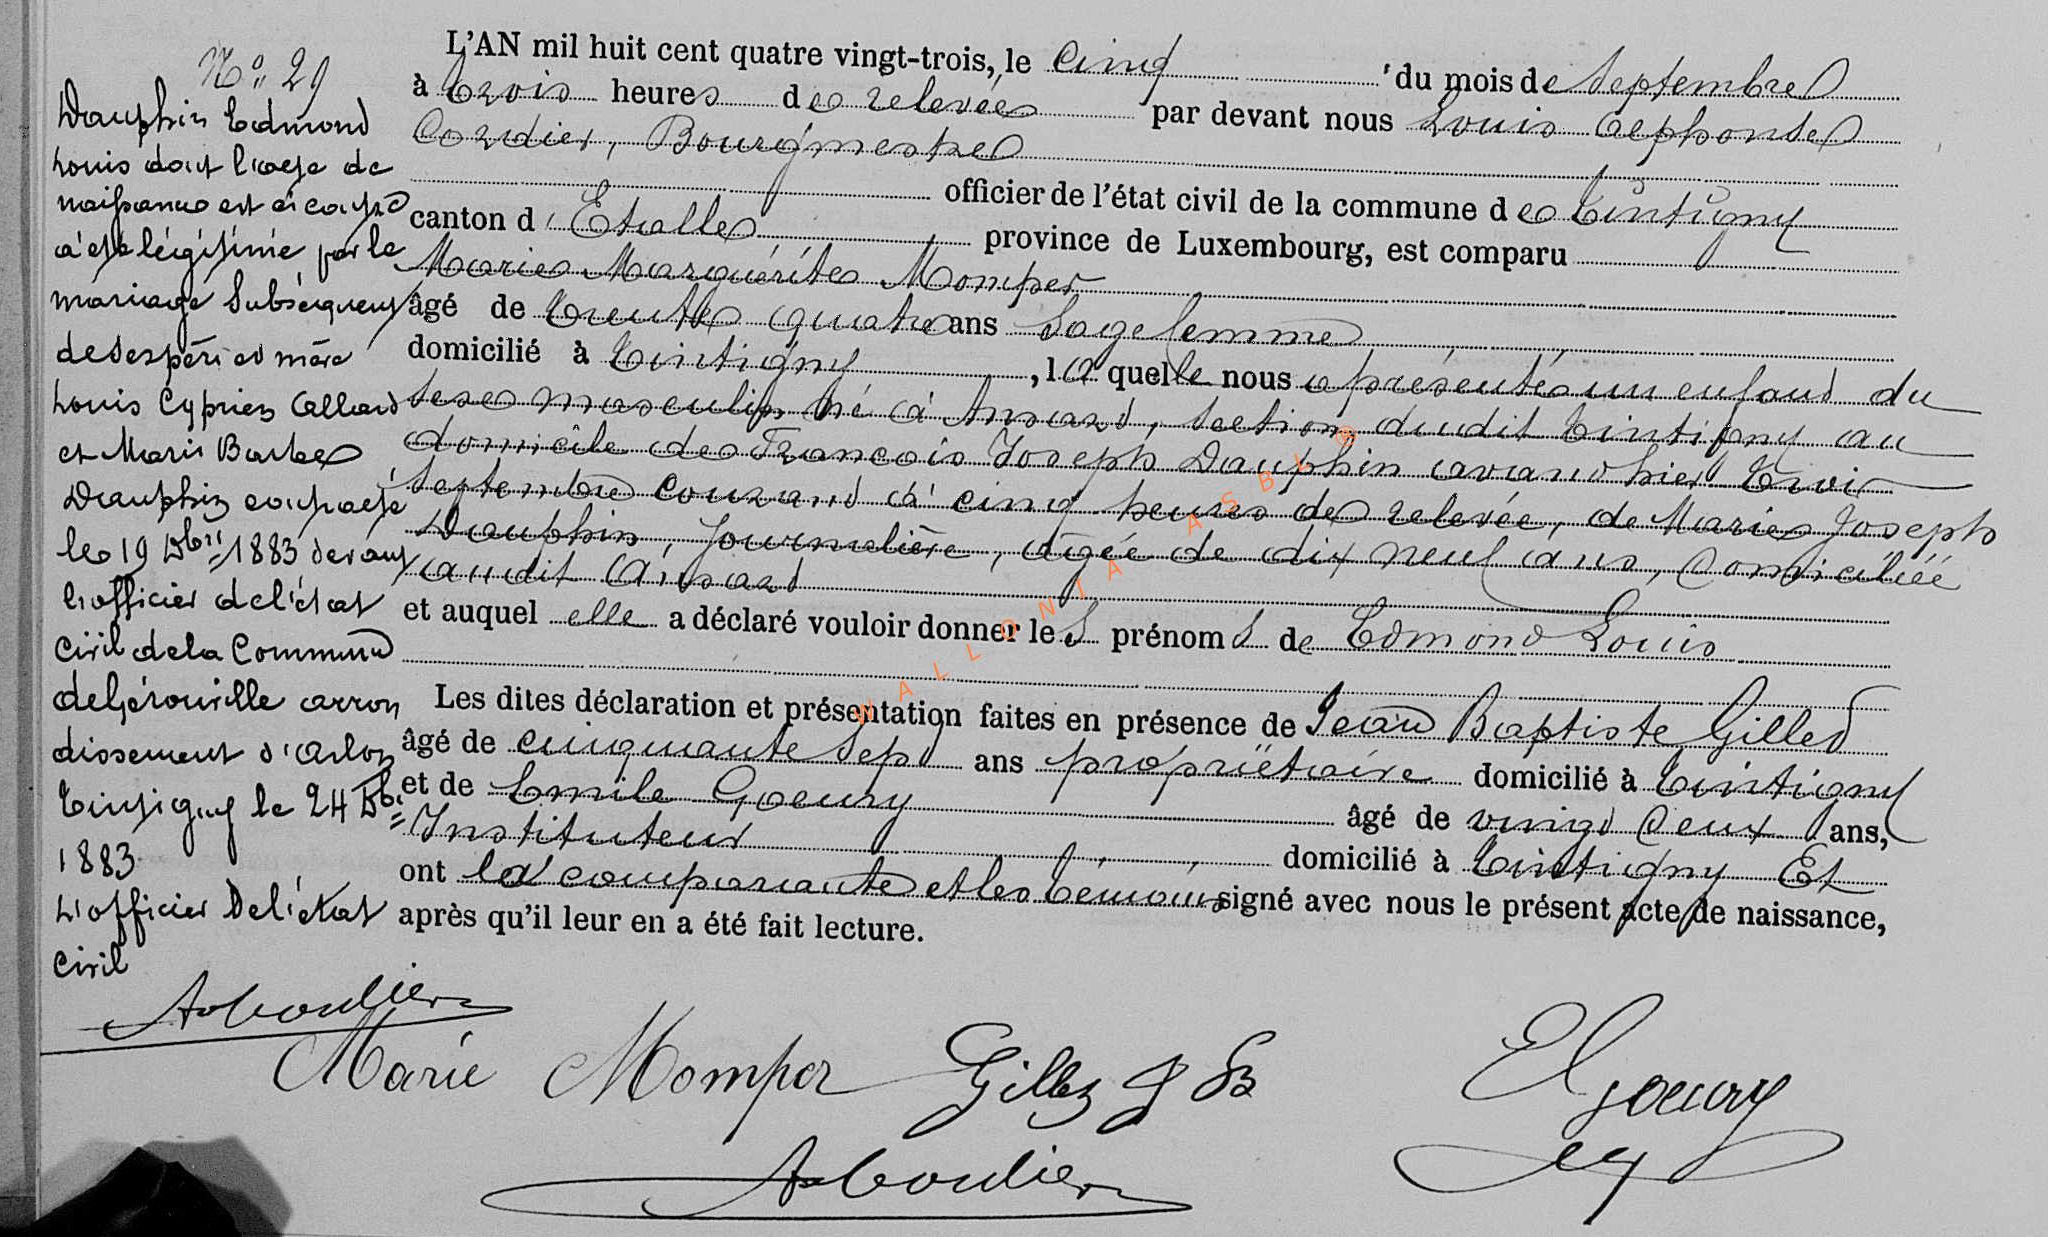 N° 29
Dauphin Edmond
Louis dont l'acte de
naissance est ci contre
a été légitimé par le
mariage subséquent
de ses père et mère
Louis Cyprien Collard
et Marie Barbe
Dauphin contracté
le 19 Xbre 1883 devant
l'officier de l'état
civil de la Commune
de Gérouville arron
dissement d'Arlon
Tintigny le 24 Xbre
1883
L'officier De l'état
civil
L'AN mil huit cent quatre vingt-trois, le cinq du mois de Septembre
à trois heures de relevée par devant nous Louis Alphonse
Cordier, Bourgmestre
officier de l'état civil de la commune de Tintigny
canton d'Etalle province de Luxembourg, est comparu
Marie Marguérite Momper
âgé de trente quatre ans Sage femme
domicilié à Tintigny, laquelle nous a présenté un enfant du
sexe masculin né à Ansart, section dudit Tintigny au
domicile de François Joseph Dauphin avant hier trois
Septembre courant à cinq heures de relevée, de Marie Joseph
Dauphin, Journalière, âgée de dix neuf ans, domiciliée
audit Ansart
et auquel elle a déclaré vouloir donner les prénoms de Edmond Louis
Les dites déclaration et présentation faites en présence de Jean Baptiste Gilles
âgé de cinquante sept ans propriétaire domicilié à Tintigny
et de Emile Goeury âgé de vingt deux ans,
Instituteur domicilié à Tintigny Et
ont la comparante et les témoins signé avec nous le présent acte de naissance,
après qu'il leur en a été fait lecture.
A Cordier
Marie Momper Gilles J B E Goeury
A Cordier
WALLONIA ASBL ®